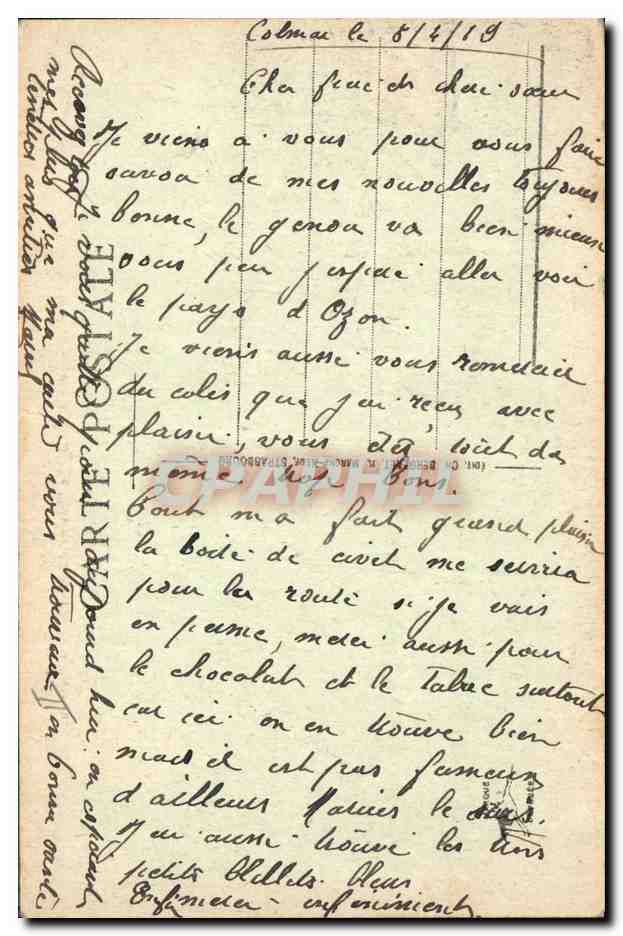 Colmar le 8/4/19
Cher frere et chere soeur
Je viens a vous pour vous faire
savoir de mes nouvelles toujours
bonne, le genou va bien mieux
sous peu j'espere aller voir
le pays d'Ozon.
Je viens aussi vous remercier
du colis que j'ai reçu avec
plaisir, vous êtes tout de
même trop bons.
Tout m'a fait grand plaisir
la boite de civet me servira
pour la route si je vais
en perme, merci aussi pour
le chocolat et le tabac surtout
car ici on en trouve bien
mais il est pas fameux
d'ailleurs le
J'ai aussi trouvé les
petits billets bleus
Enfin merci infiniment
Je vous quitte pour aujourd'hui en espérant
que ma carte vous trouvera en bonne santé
mes plus
tendres amitiés
CARTE POSTALE
EDIT. CH. BERGERET, STRASBOURG
CPAPHIL